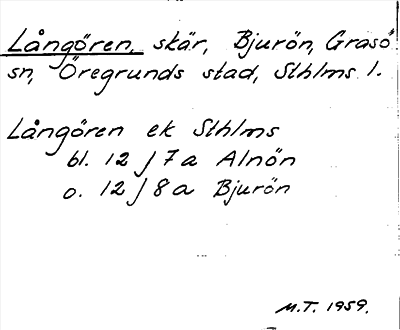 Långören, skär, Bjurön, Gräsö
sn, Öregrunds stad, Sthlms l.
Långören ek Sthlms
bl. 12 J 7 a Alnön
o. 12 J 8 a Bjurön
M.T. 1959.